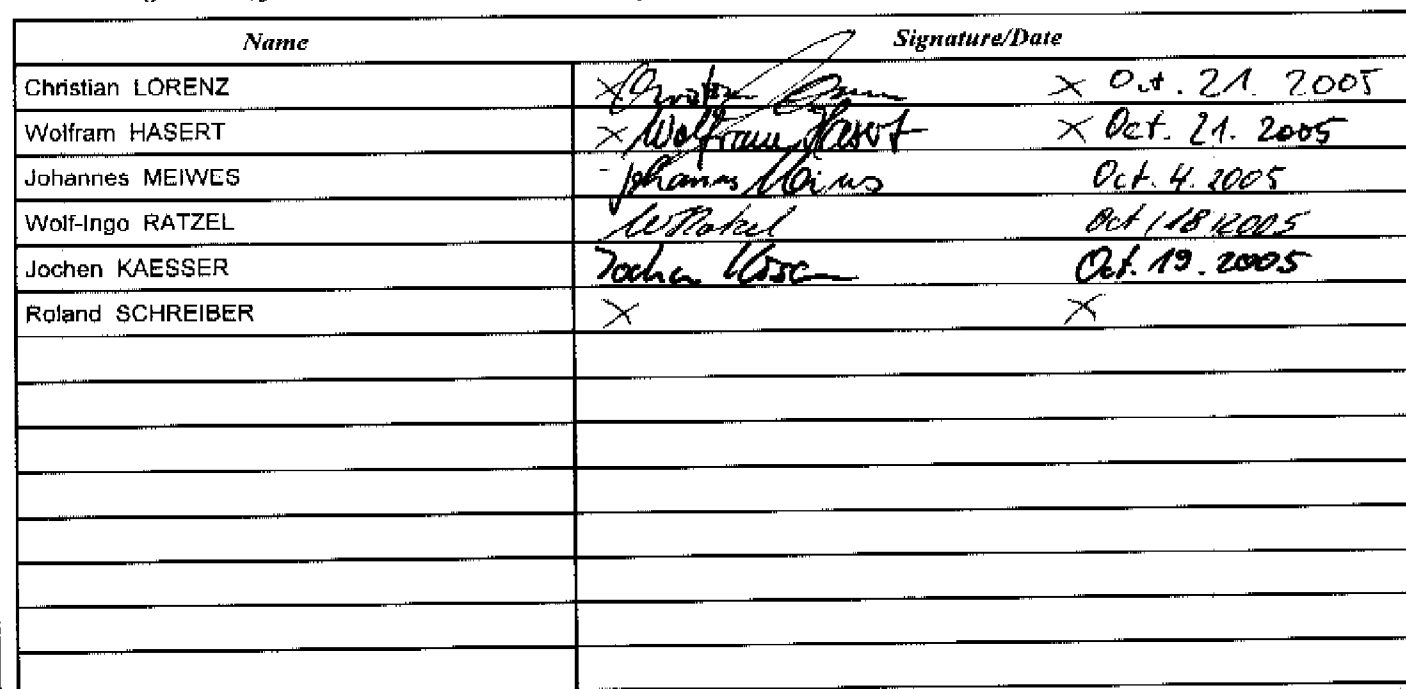 Name Signature/Date
Christian LORENZ × × Oct. 21. 2005
Wolfram HASERT × Wolfram Hasert × Oct. 21. 2005
Johannes MEIWES Johannes Oct. 4. 2005
Wolf-Ingo RATZEL Oct/18/2005
Jochen KAESSER Jochen Oct. 19. 2005
Roland SCHREIBER × ×